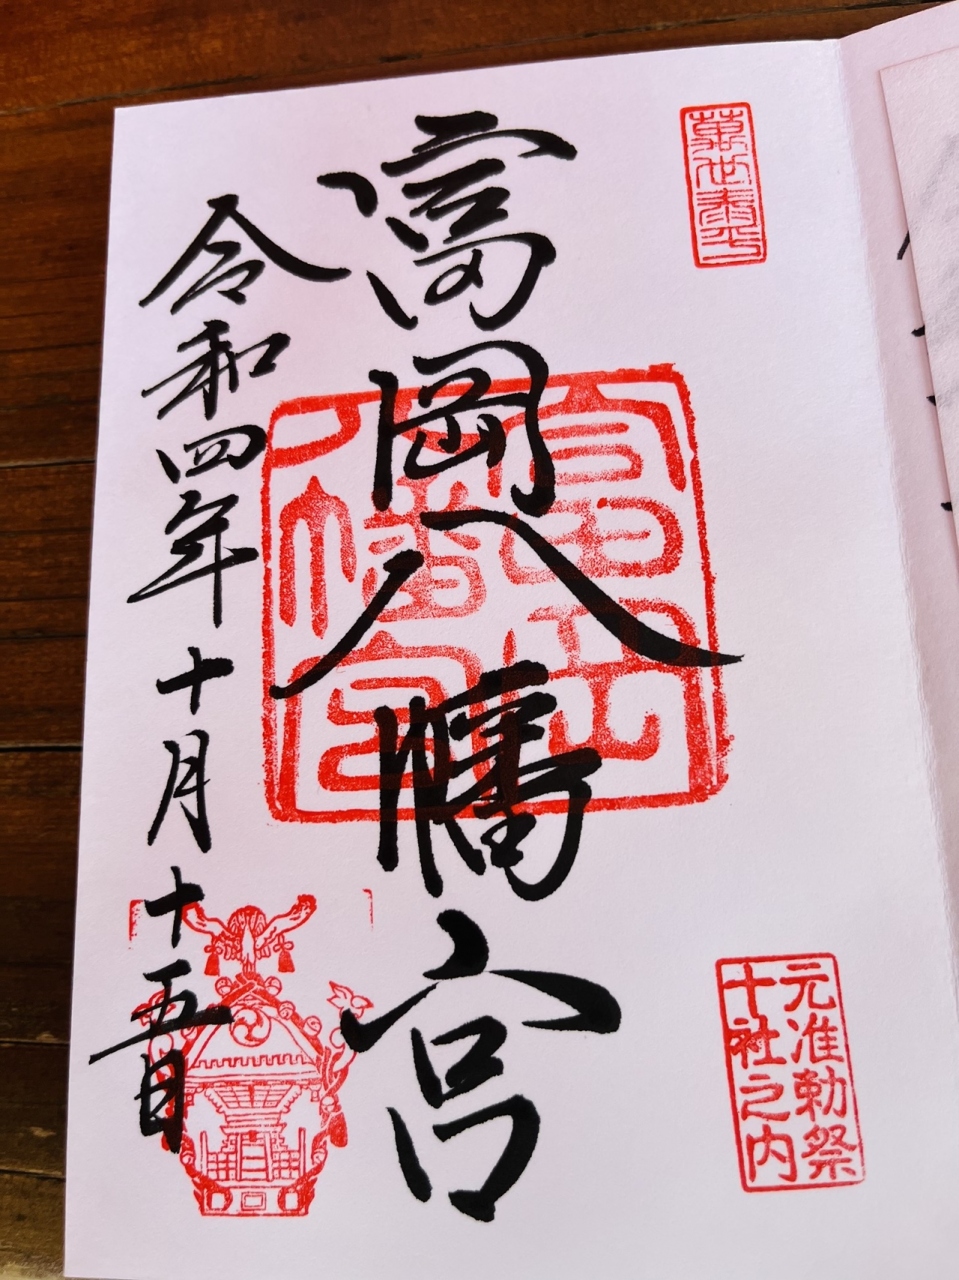 萬世泰平
元准勅祭
十社之内
富岡八幡宮
富岡
八幡宮
令和四年十月十五日